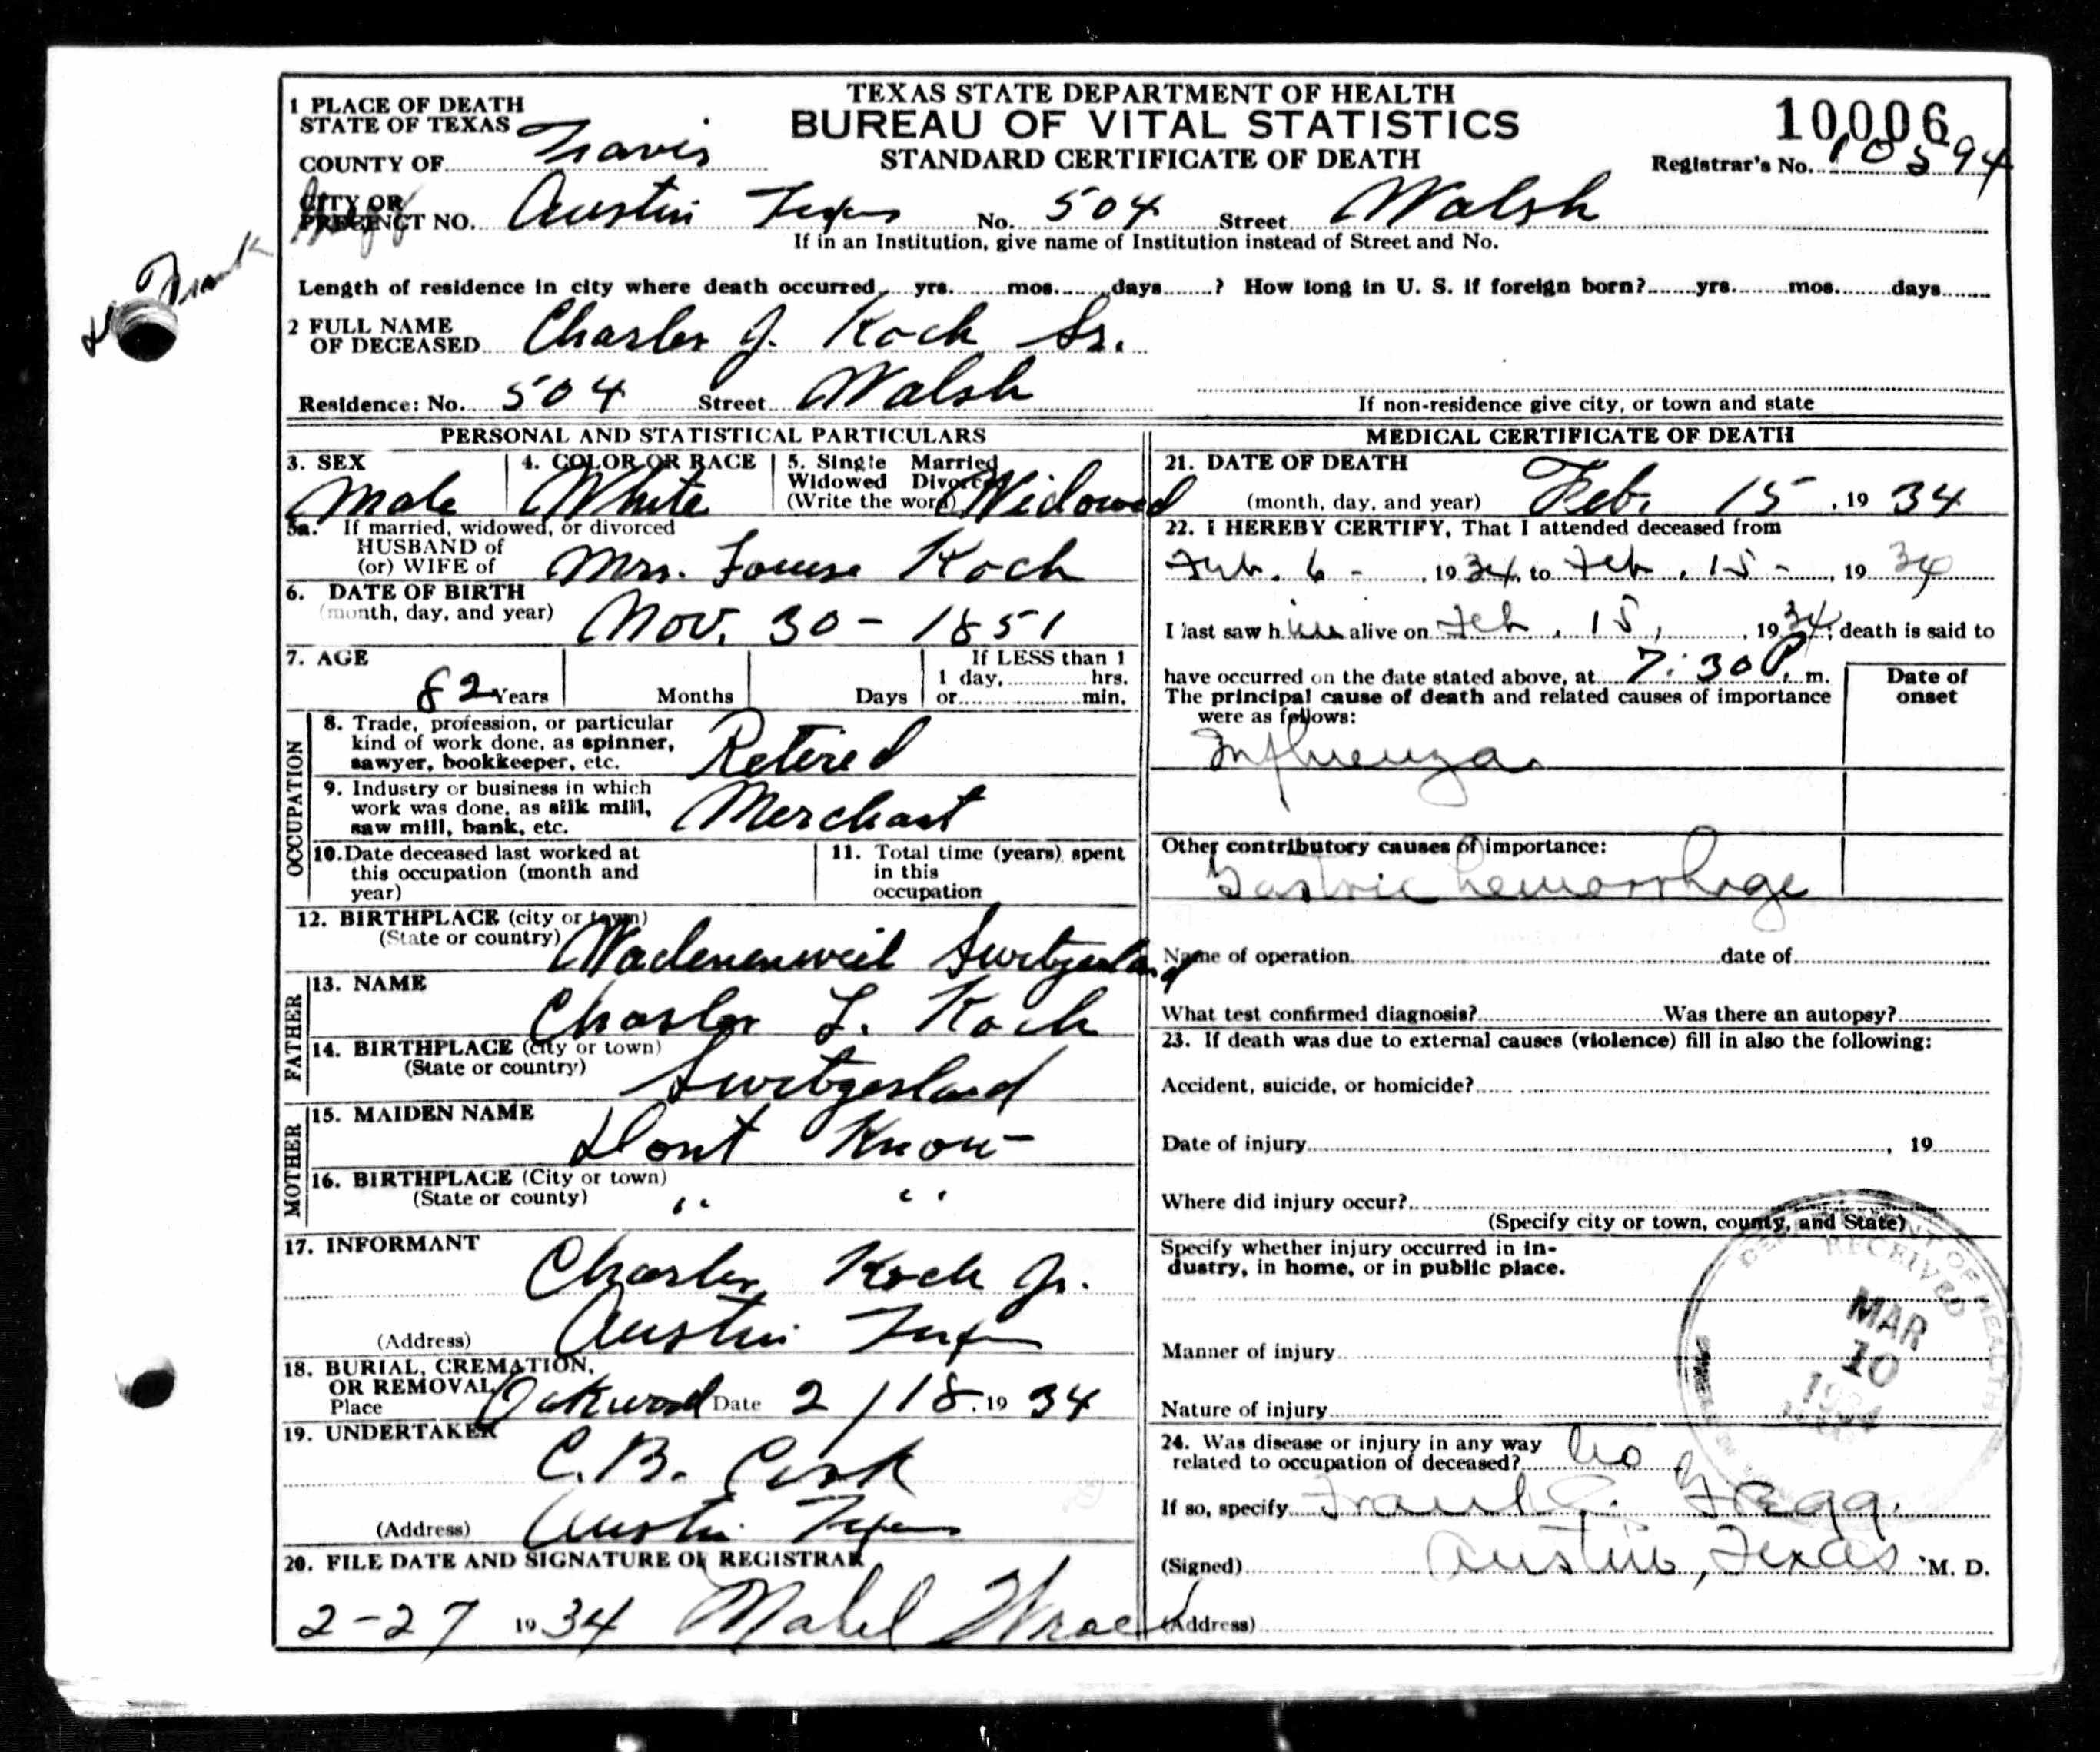 TEXAS STATE DEPARTMENT OF HEALTH
BUREAU OF VITAL STATISTICS
STANDARD CERTIFICATE OF DEATH
10006
Registrar's No.
1 PLACE OF DEATH
STATE OF TEXAS
COUNTY OF Travis
CITY OR
PRECINCT NO. Austin Texas No. 504 Street Walsh
If in an Institution, give name of Institution instead of Street and No.
Frank
Length of residence in city where death occurred yrs. mos. days ? How long in U. S. if foreign born? yrs. mos. days
2 FULL NAME
OF DECEASED Charles J. Koch Sr.
Residence: No. 504 Street Walsh
If non-residence give city, or town and state
PERSONAL AND STATISTICAL PARTICULARS
3. SEX 4. COLOR OR RACE 5. Single Married
Widowed Divorced
Male White (Write the word) Widowed
5a. If married, widowed, or divorced
HUSBAND of
(or) WIFE of Mrs. Louise Koch
6. DATE OF BIRTH
(month, day, and year) Nov. 30 - 1851
7. AGE If LESS than 1
1 day, hrs.
82 Years Months Days or min.
OCCUPATION
8. Trade, profession, or particular
kind of work done, as spinner,
sawyer, bookkeeper, etc. Retired
9. Industry or business in which
work was done, as silk mill,
saw mill, bank, etc. Merchant
10. Date deceased last worked at
this occupation (month and
year)
11. Total time (years) spent
in this
occupation
12. BIRTHPLACE (city or town)
(State or country) Wadenenweil Switzerland
FATHER
13. NAME Charles L. Koch
14. BIRTHPLACE (city or town)
(State or country) Switzerland
MOTHER
15. MAIDEN NAME Dont Know -
16. BIRTHPLACE (City or town)
(State or county) " "
17. INFORMANT Charles Koch Jr.
(Address) Austin Texas
18. BURIAL, CREMATION,
OR REMOVAL
Place Oakwood Date 2/18. 19 34
19. UNDERTAKER C. B. Cook
(Address) Austin Texas
20. FILE DATE AND SIGNATURE OF REGISTRAR
2-27 19 34 Mabel
MEDICAL CERTIFICATE OF DEATH
21. DATE OF DEATH
(month, day, and year) Feb. 15, 19 34
22. I HEREBY CERTIFY, That I attended deceased from
Feb. 6 -, 19 34, to Feb. 15 -, 19 34
I last saw h im alive on Feb. 15, 19 34; death is said to
have occurred on the date stated above, at 7:30 P. m.
The principal cause of death and related causes of importance
were as follows:
Date of
onset
Influenza
Other contributory causes of importance:
Gastric hemorrhage
Name of operation date of
What test confirmed diagnosis? Was there an autopsy?
23. If death was due to external causes (violence) fill in also the following:
Accident, suicide, or homicide?
Date of injury , 19
Where did injury occur?
(Specify city or town, county, and State)
Specify whether injury occurred in in-
dustry, in home, or in public place.
Manner of injury
Nature of injury
24. Was disease or injury in any way
related to occupation of deceased? No
If so, specify Frank C. Gregg.
(Signed) Austin, Texas M. D.
(Address)
DEPARTMENT OF HEALTH
RECEIVED
MAR
10
1934